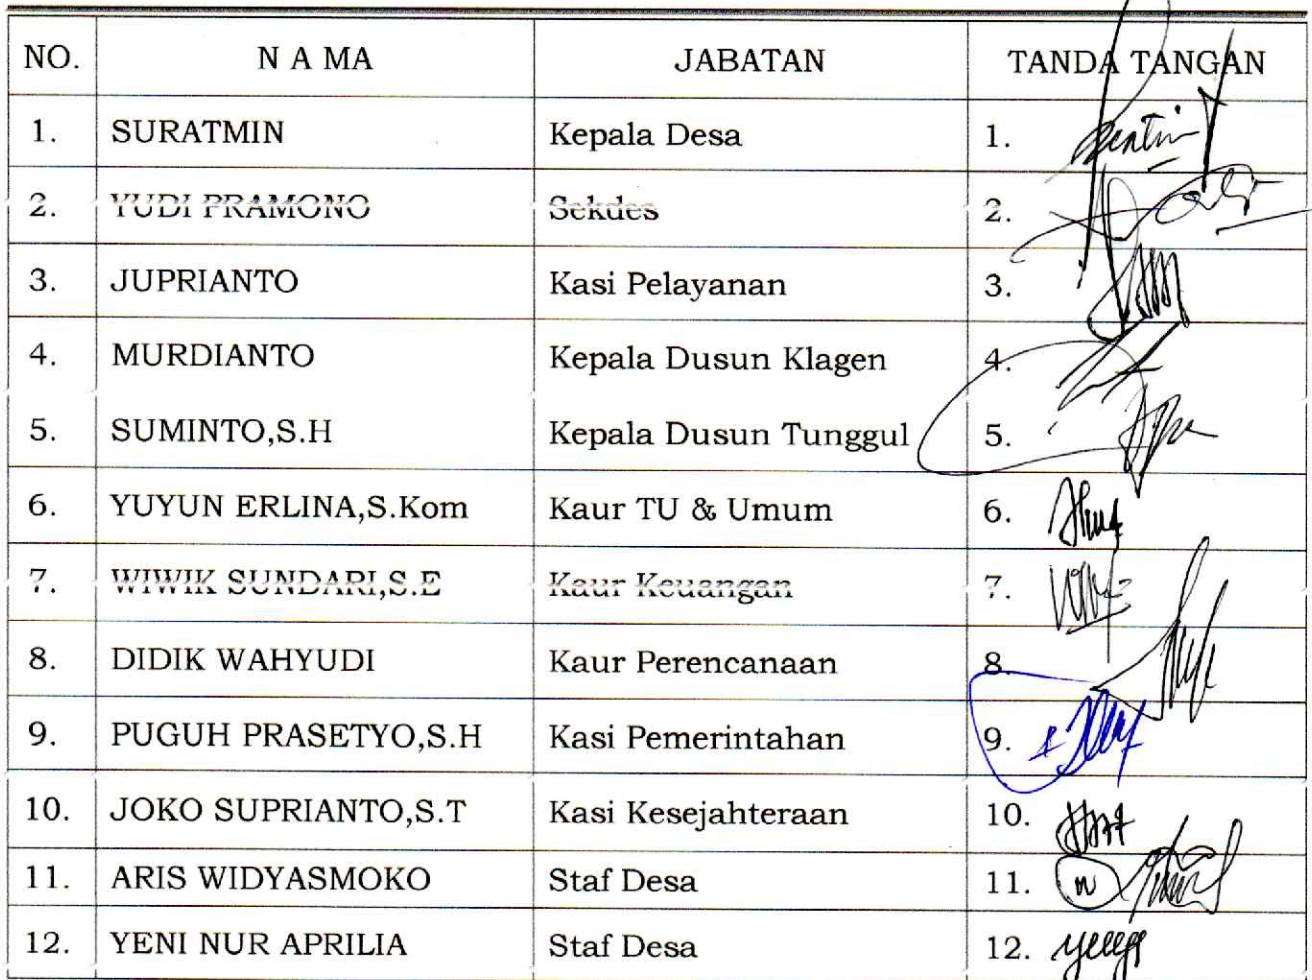 NO. N A M A JABATAN TANDA TANGAN
1. SURATMIN Kepala Desa 1.
2. YUDI PRAMONO Sekdes 2.
3. JUPRIANTO Kasi Pelayanan 3.
4. MURDIANTO Kepala Dusun Klagen 4.
5. SUMINTO,S.H Kepala Dusun Tunggul 5.
6. YUYUN ERLINA,S.Kom Kaur TU & Umum 6.
7. WIWIK SUNDARI,S.E Kaur Keuangan 7.
8. DIDIK WAHYUDI Kaur Perencanaan 8.
9. PUGUH PRASETYO,S.H Kasi Pemerintahan 9.
10. JOKO SUPRIANTO,S.T Kasi Kesejahteraan 10.
11. ARIS WIDYASMOKO Staf Desa 11.
12. YENI NUR APRILIA Staf Desa 12.